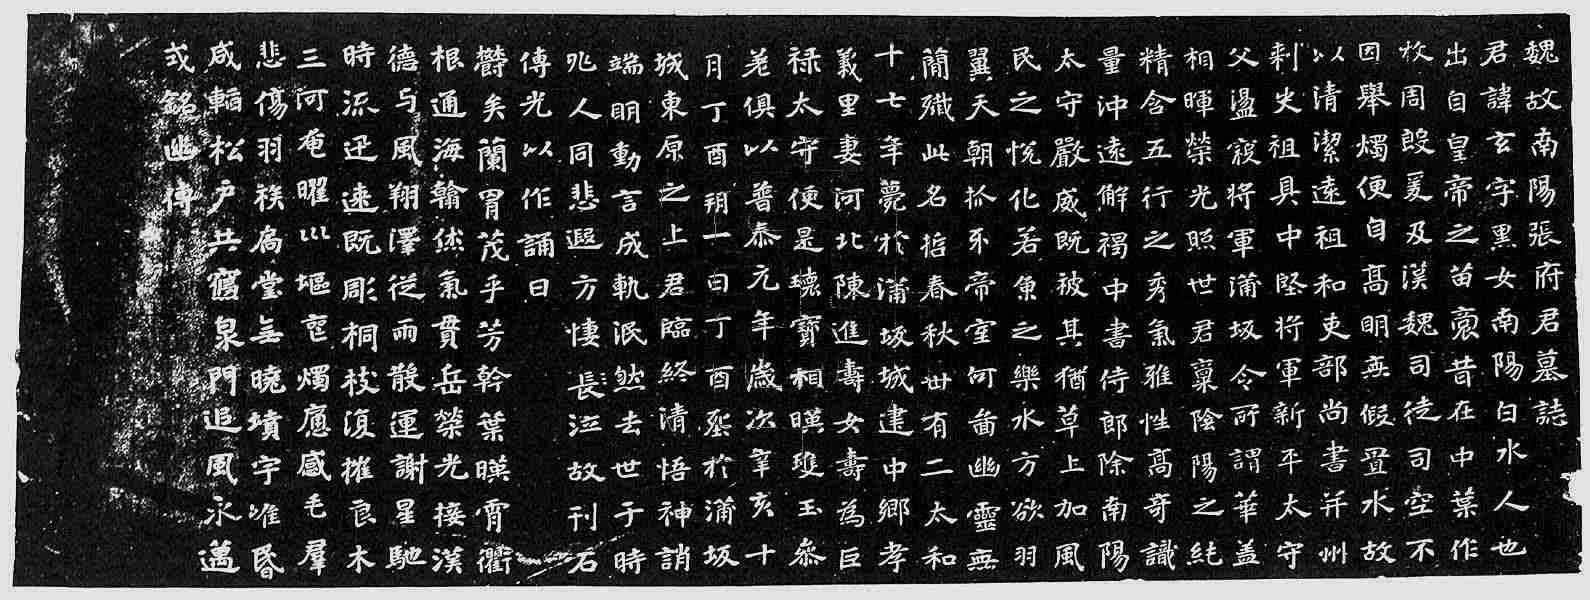 魏故南陽張府君墓誌
君諱玄字黑女南陽白水人也
出自皇帝之苗裔昔在中葉作
牧周殷爰及漢魏司徒司空不
因舉燭便自高明無假置水故
以清潔遠祖和吏部尚書并州
刺史祖具中堅將軍新平太守
父盪寇將軍蒲坂令所謂華蓋
相暉榮光照世君稟陰陽之純
精含五行之秀氣雅性高奇識
量沖遠解褐中書侍郎除南陽
太守嚴威既被其猶草上加風
民之悅化若魚之樂水方欲羽
翼天朝抓牙帝室何啚幽靈無
簡殲此名哲春秋卅有二太和
十七年薨於蒲坂城建中鄉孝
義里妻河北陳進壽女壽為巨
祿太守便是瓌寶相暎瓊玉參
差俱以普泰元年歲次辛亥十
月丁酉朔一日丁酉塟於蒲坂
城東原之上君臨終清悟神誚
端明動言成軌泯然去世于時
兆人同悲遐方悽長泣故刊石
傳光以作誦曰
欝矣蘭胄茂乎芳幹葉暎霄衢
根通海翰烋氣貫岳榮光接漢
德与風翔澤從雨散運謝星馳
時流迅速既彫桐枝復摧良木
三河奄曜巛塸燭應感毛羣
悲傷羽族扃堂無曉墳宇唯昏
咸韜松戶共寢泉門追風永邁
式銘幽傳